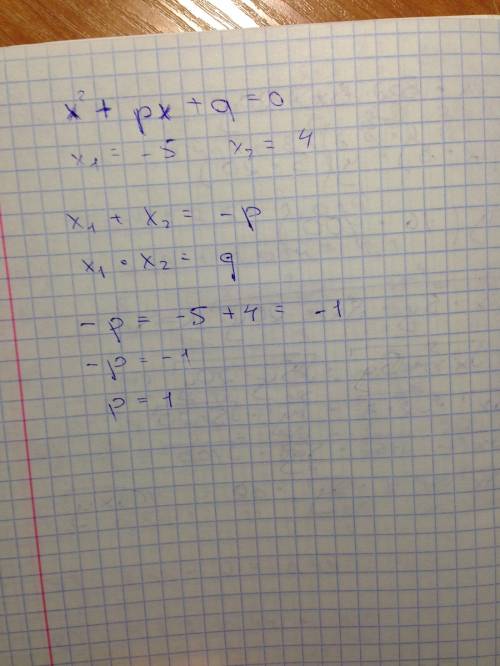 x² + px + q = 0
x₁ = -5 x₂ = 4
x₁ + x₂ = -p
x₁ • x₂ = q
-p = -5 + 4 = -1
-p = -1
p = 1